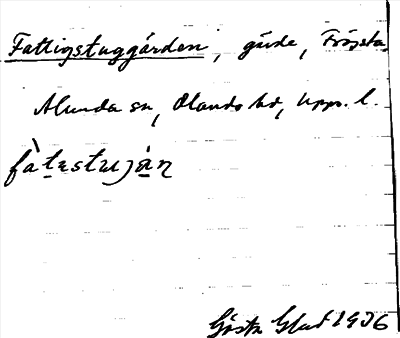 Fattigstuggården, gärde, Frösta,
Alunda sn, Olands hd, Upps. l.
fàtestuján
Gösta Glad 1906